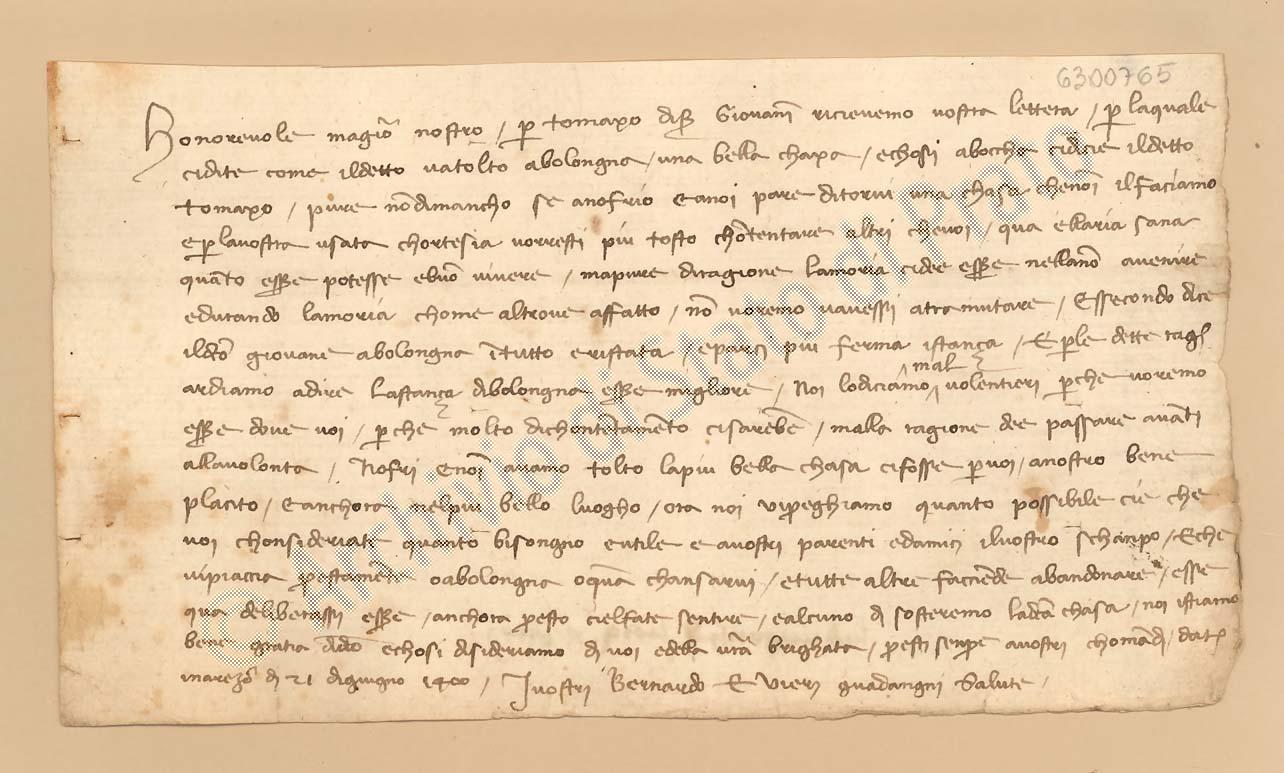 6300765
Honorevole magio͂ nostro / p tomaxo di S Giovani͂ ricievemo vostra lettera / p laquale
cidite come ildetto va tolto abolongna / una bella chaxa / echosi abocha cidicie ildetto
tomaxo / pure no͂dimancho se anofrio eanoi pare ditorvi una chasa chenoi͂ ilfaciamo
e p lavostra usata chortesia vorresti piu tosto cho͂tentare altri chevoi / qua e llaria sana
qua͂to esse potesse ebuo͂ vivere / mapure diragione lamoria cidee esse nellano͂ avenire
edurando lamoria chome altrove affatto / no͂ voremo vavessi atramutare / Essecondo dice
ildto͂ giovane abolongna i͂tutto eristata / eparci piu ferma istança / E p le dette ragi
ardiamo adire lastança dibolongna esse migliore / Noi lodiciamo mal volentieri p che voremo
esse dove voi / p che molto dichonte͂tame͂to cisarebe͂ / malla ragione dee passare ava͂ti
allavolonta / Nofri enoi͂ avamo tolto lapiu bella chasa cifosse p voi / anostro bene
placito / eanchora nelpiu bello luogho / ora noi vi preghiamo quanto possibile cie che
voi chonsideriate quanto͂ bisongno eutile e avostri parenti edamici ilvostro schanpo / Eche
vipiaccia prestame͂te oabolongna o qua͂ chansarvi / etutte altre faciende abandonare / esse
qua deliberassi esse / anchora presto cielfate sentire / ealcuno di sosteremo lad͂a chasa / noi istiamo
bene gratia didio͂ echosi disideriamo di voi edella vra͂ brighata / presti senpre avostri choma͂di / dat
inarezo͂ di 21 digiugno 1400 / I vostri Bernardo E Vieri guadangni Salute
© Archivio di Stato di Prato